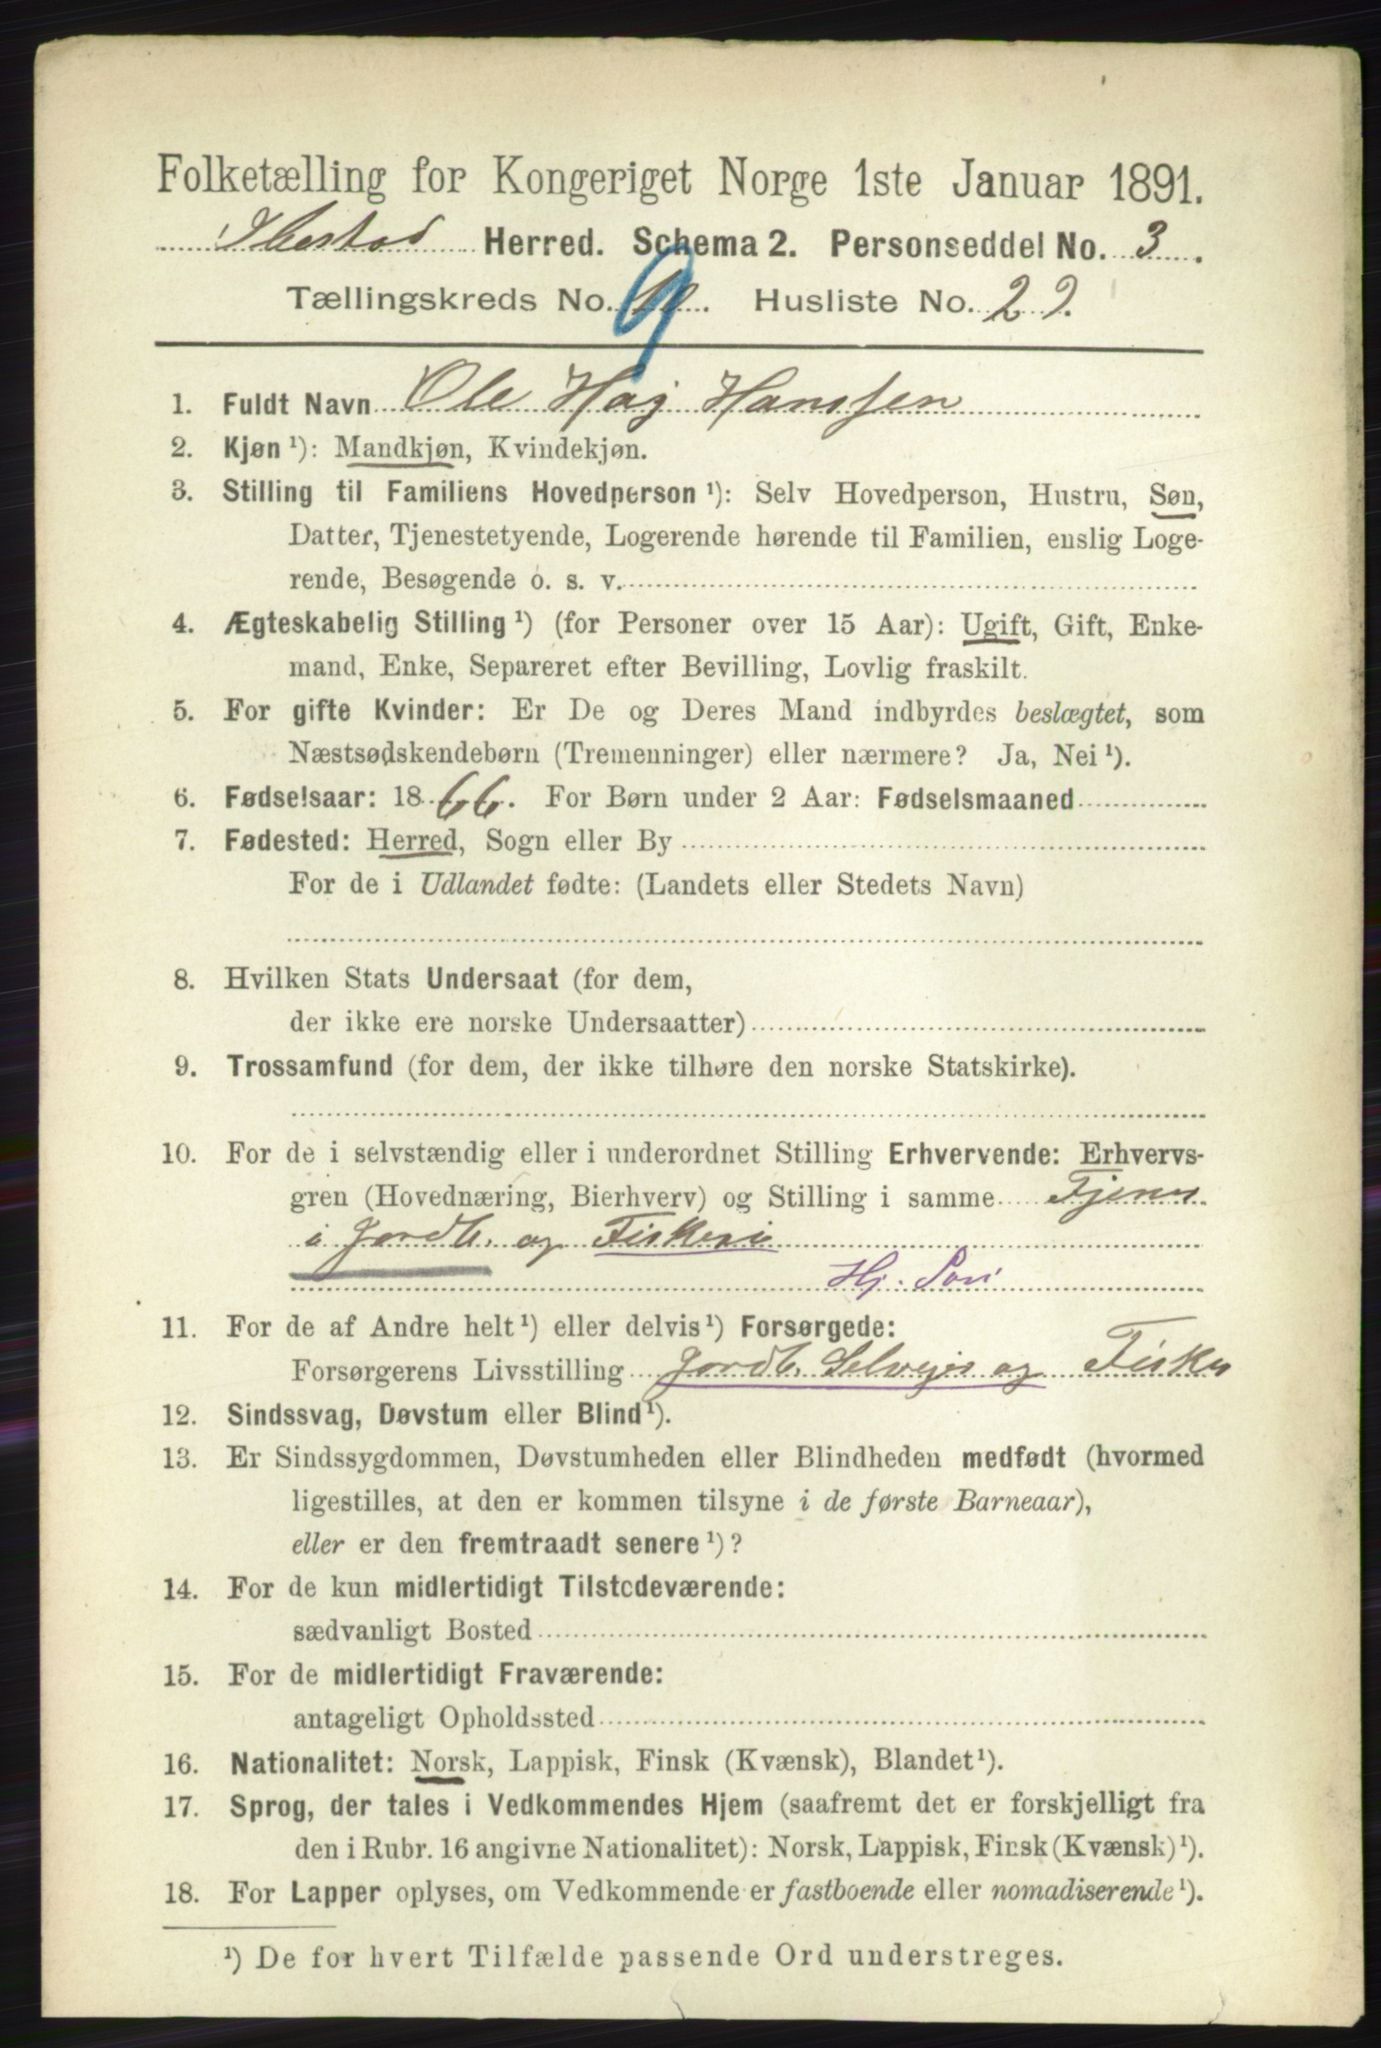 Folketælling for Kongeriget Norge 1ste Januar 1891.
Ibestad Herred. Schema 2. Personseddel No. 3.
Tællingskreds No. 9. Husliste No. 29.
1. Fuldt Navn Ole Haj Hanssen
2. Kjøn ¹): Mandkjøn, Kvindekjøn.
3. Stilling til Familiens Hovedperson ¹): Selv Hovedperson, Hustru, Søn,
Datter, Tjenestetyende, Logerende hørende til Familien, enslig Loge-
rende, Besøgende o. s. v.
4. Ægteskabelig Stilling ¹) (for Personer over 15 Aar): Ugift, Gift, Enke-
mand, Enke, Separeret efter Bevilling, Lovlig fraskilt.
5. For gifte Kvinder: Er De og Deres Mand indbyrdes beslægtet, som
Næstsødskendebørn (Tremenninger) eller nærmere? Ja, Nei ¹).
6. Fødselsaar: 1866. For Børn under 2 Aar: Fødselsmaaned
7. Fødested: Herred, Sogn eller By
For de i Udlandet fødte: (Landets eller Stedets Navn)
8. Hvilken Stats Undersaat (for dem,
der ikke ere norske Undersaatter)
9. Trossamfund (for dem, der ikke tilhøre den norske Statskirke).
10. For de i selvstændig eller i underordnet Stilling Erhvervende: Erhvervs-
gren (Hovednæring, Bierhverv) og Stilling i samme Tjener
i Jordb. og Fiskeri
Hj. Søn
11. For de af Andre helt ¹) eller delvis ¹) Forsørgede:
Forsørgerens Livsstilling Jordb. Selvejer og Fisker
12. Sindssvag, Døvstum eller Blind ¹).
13. Er Sindssygdommen, Døvstumheden eller Blindheden medfødt (hvormed
ligestilles, at den er kommen tilsyne i de første Barneaar),
eller er den fremtraadt senere ¹)?
14. For de kun midlertidigt Tilstedeværende:
sædvanligt Bosted
15. For de midlertidigt Fraværende:
antageligt Opholdssted
16. Nationalitet: Norsk, Lappisk, Finsk (Kvænsk), Blandet ¹).
17. Sprog, der tales i Vedkommendes Hjem (saafremt det er forskjelligt fra
den i Rubr. 16 angivne Nationalitet): Norsk, Lappisk, Finsk (Kvænsk) ¹).
18. For Lapper oplyses, om Vedkommende er fastboende eller nomadiserende ¹).
¹) De for hvert Tilfælde passende Ord understreges.